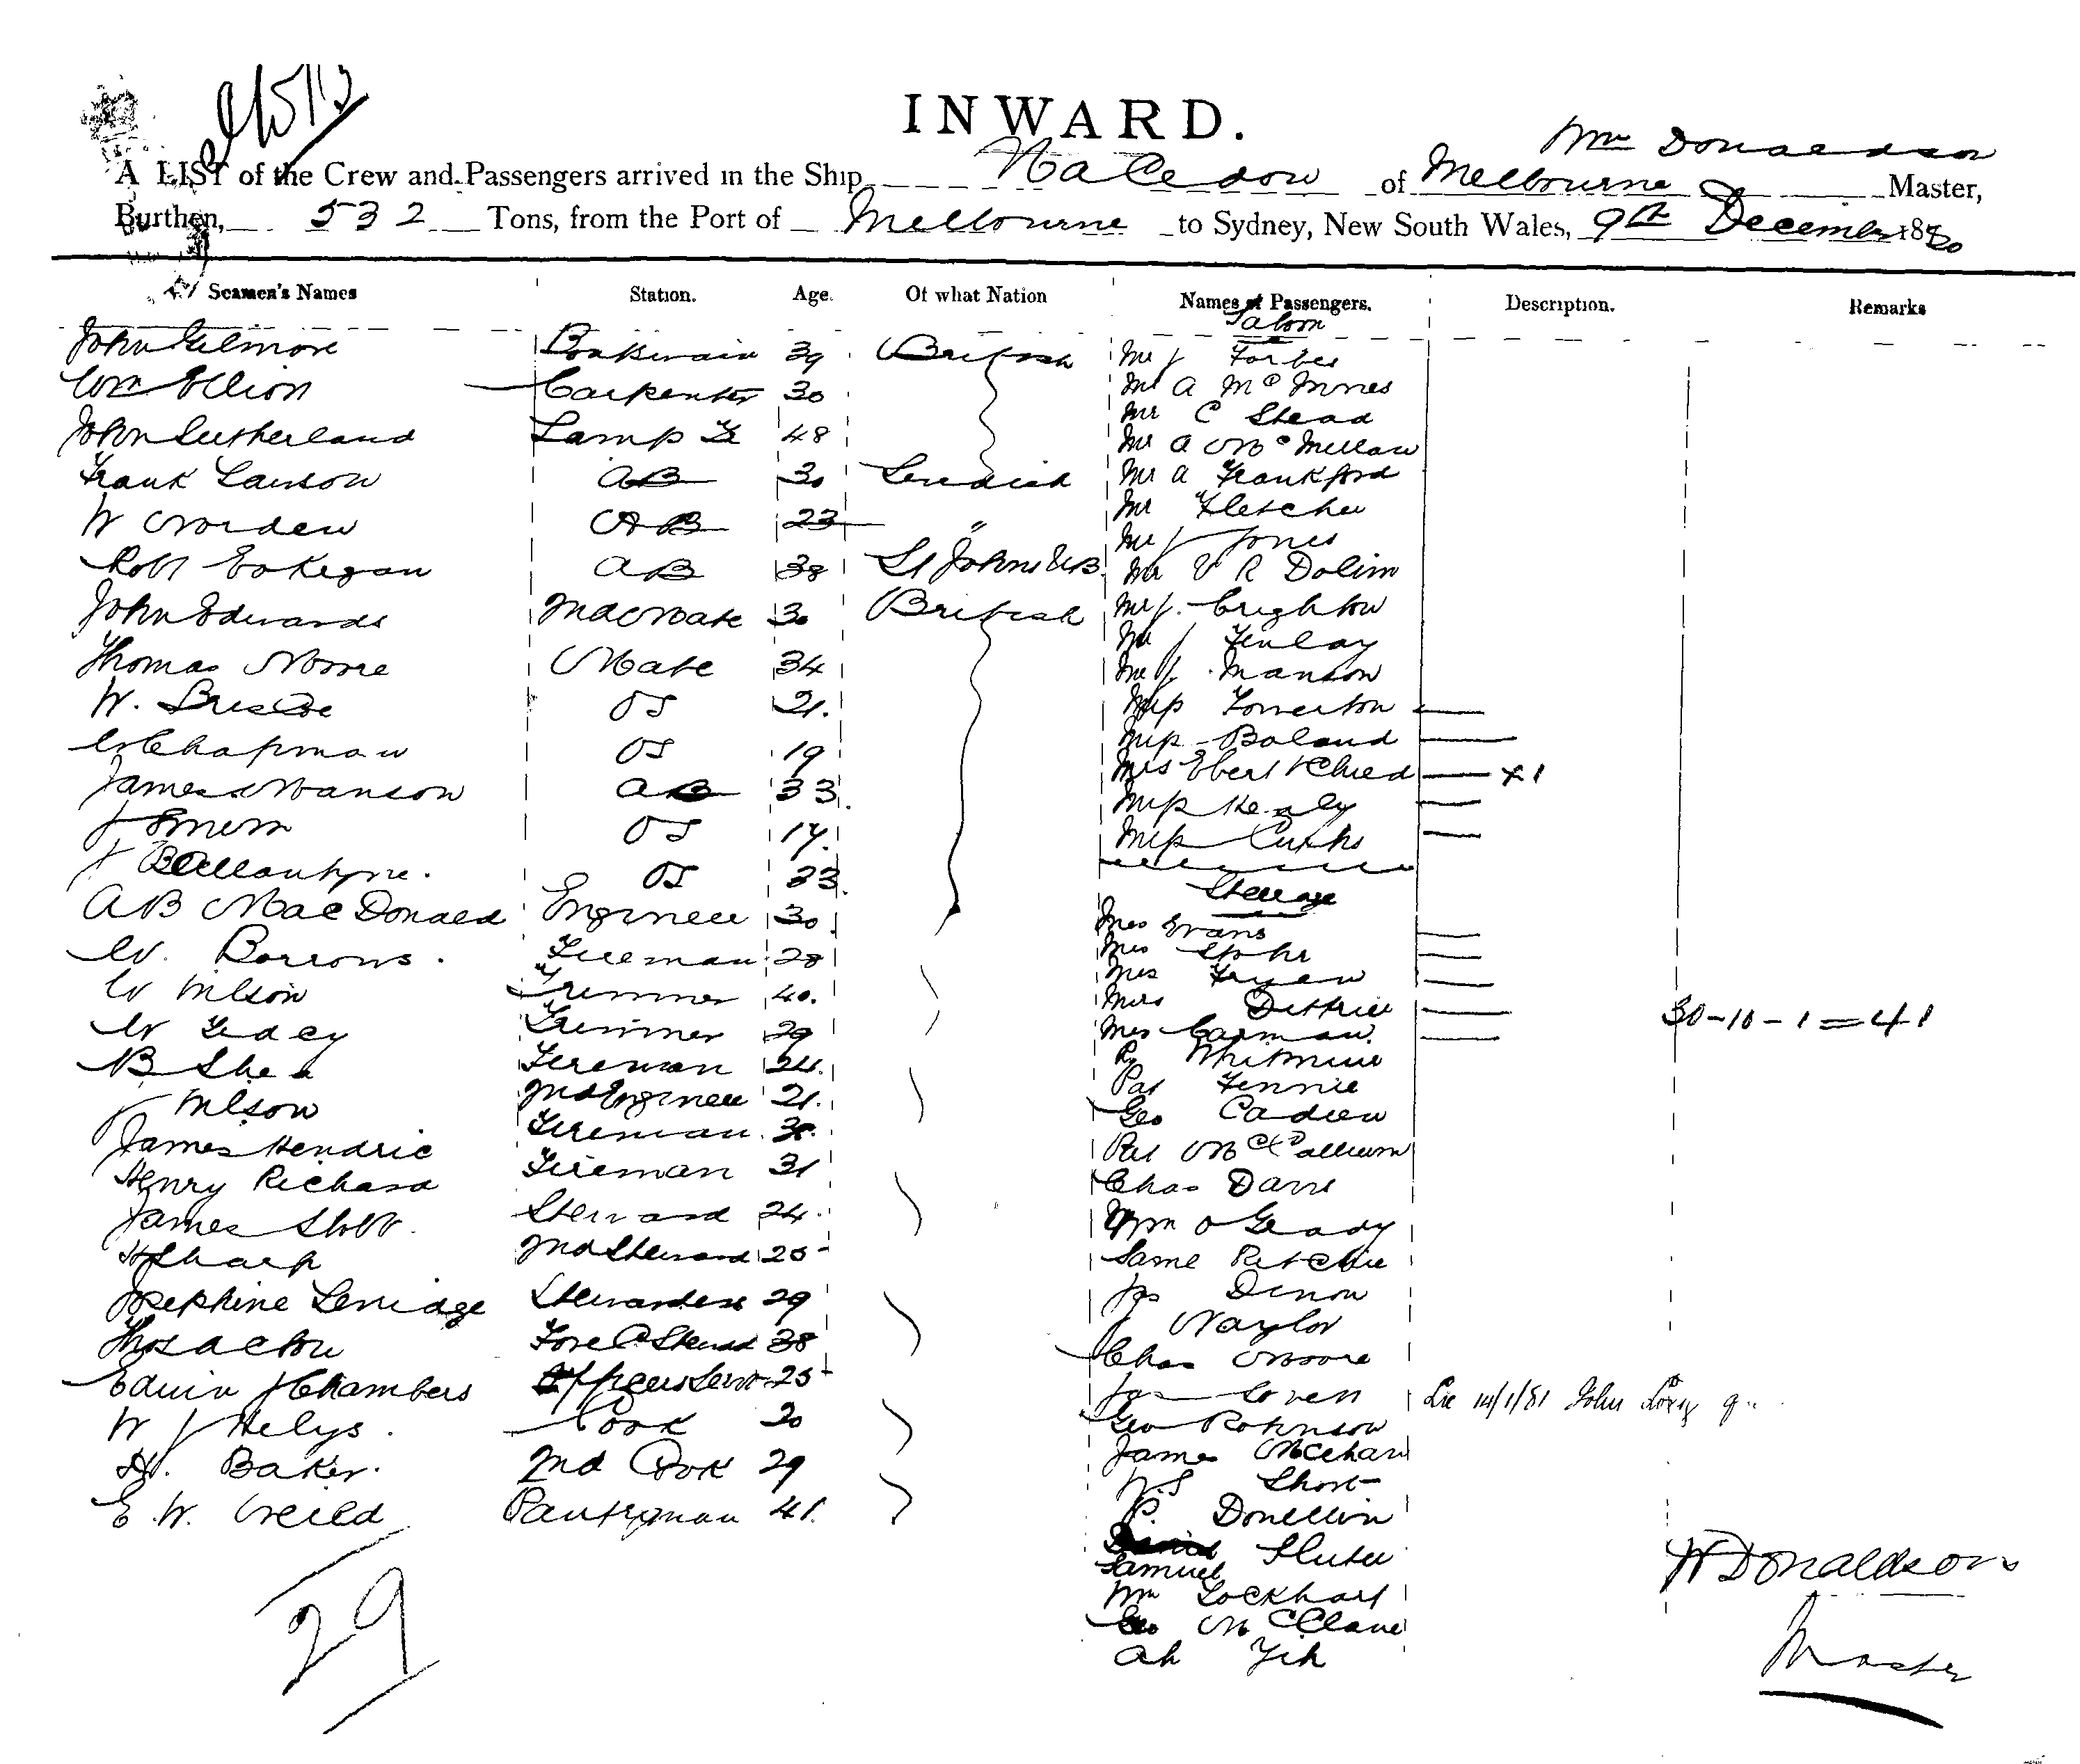 INWARD.
Wm Donaldson
A LIST of the Crew and Passengers arrived in the Ship Macedon of Melbourne Master,
Burthen, 532 Tons, from the Port of Melbourne to Sydney, New South Wales, 9th December 1880
Seamen's Names Station. Age. Of what Nation Names of Passengers. Description. Remarks
Saloon
John Gilmore Boatswain 39 British Mr J Forbes
Wm Ellion Carpenter 30 Mr A McInnes
Mr C Stead
John Sutherland Lamp Tr 48 Mr A McMillan
Frank Lawson AB 30 Swedish Mr A Frankford
W Norden AB 23 " Mr Fletcher
Mr J Jones
Robt AB 38 St Johns NB Mr V R Dolim
John Edwards 2nd Mate 30 British Mr J. Crighton
Mr J Finlay
Thomas Moore Mate 34 Mr J Manson
W. Briscoe OS 21. Miss Fowerton
W Chapman OS 19 Miss Boland
James Manson AB 33. Mrs Ebert & Child x1
J OS 17. Miss Healy
J Ballantyne. OS 23. Miss Curtis
Steerage
AB MacDonald Engineer 30. Mrs Evans
W. Borrows. Fireman 28 Mrs Spohr
W Wilson Trimmer 40. Mrs Fryer
W Trimmer 29 Mrs Dettrice 30-10-1=41
Mrs Carman.
B Shea Fireman 24. Whitmire
J Wilson 2nd Engineer 21. Pat Fennie
James Hendric Fireman 30. Geo Cadden
Pat McCallum
Henry Richard Fireman 31 Chas Davis
James Stott. Steward 24. Wm O Grady
H Sharp 2nd Steward 25 Same Ritchie
Josephine Steward­ess 29 Jas Dinon
J Naylor
Thos Acton Fore C Steward 38 Chas Moore
Edwin J Chambers Officers Servt 25 Jas Coven Lie 14/1/81 John
W J Helys. Cook 20 Geo Robinson
H. Baker. 2nd Cook 29 James McEhan
W.S Short
E. W. Pantryman 41. P. Donellin
Samuel Sluter
Wm Lockhart
Geo McClane
Ah Yih
29
W Donaldson
Master